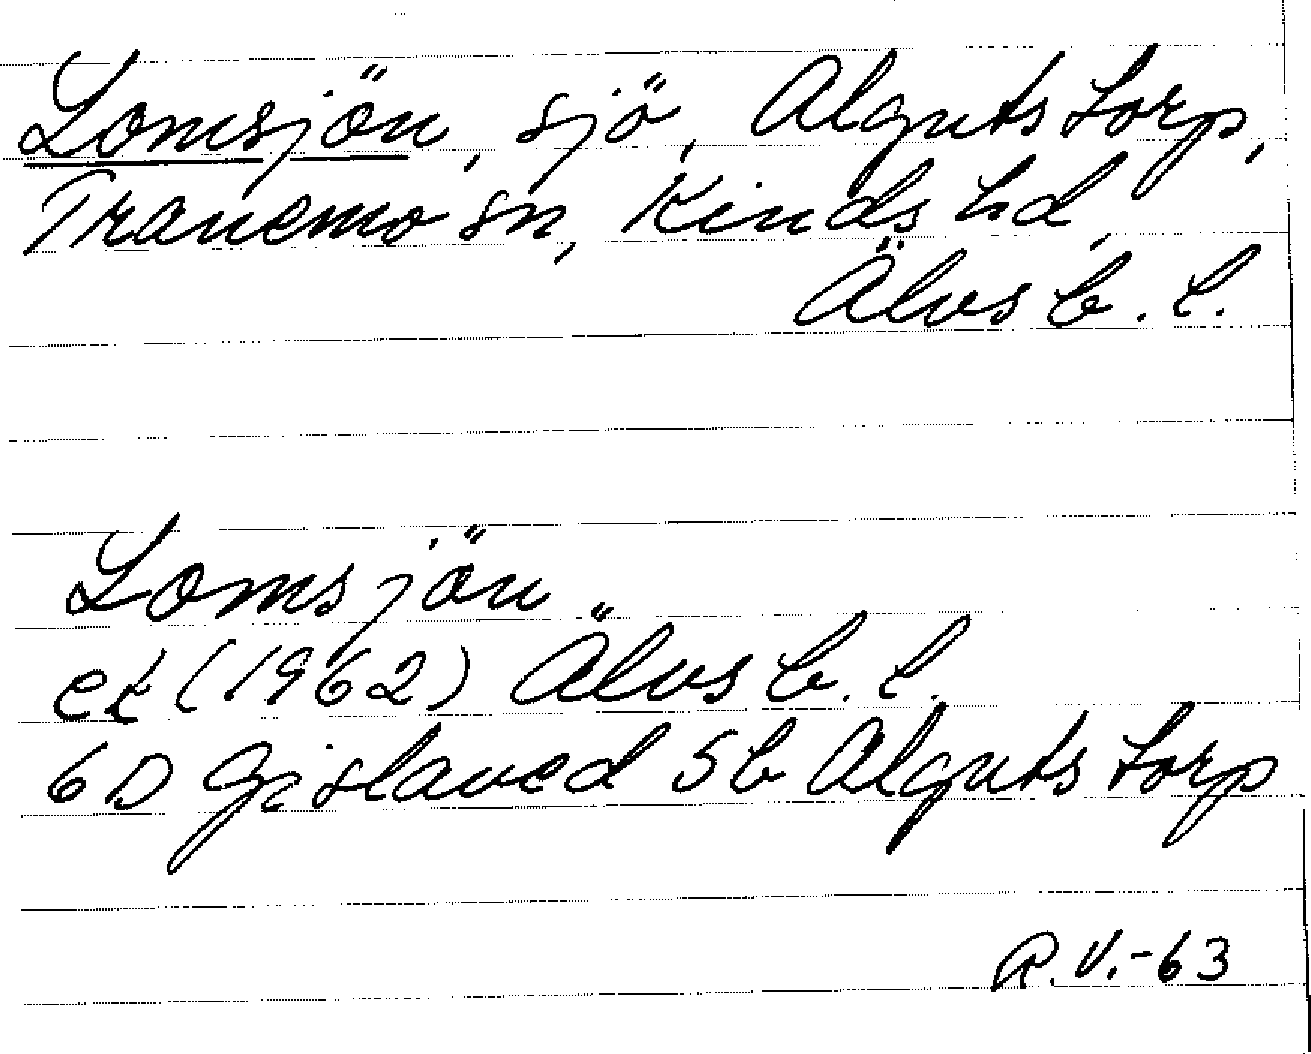 Lomsjön, sjö, Algutstorp,
Tranemo sn, Kinds hd,
Älvsb. l.
Lomsjön
ek (1962) Älvsb. l.
6D Gislaved 5b Algutstorp
R.V.-63